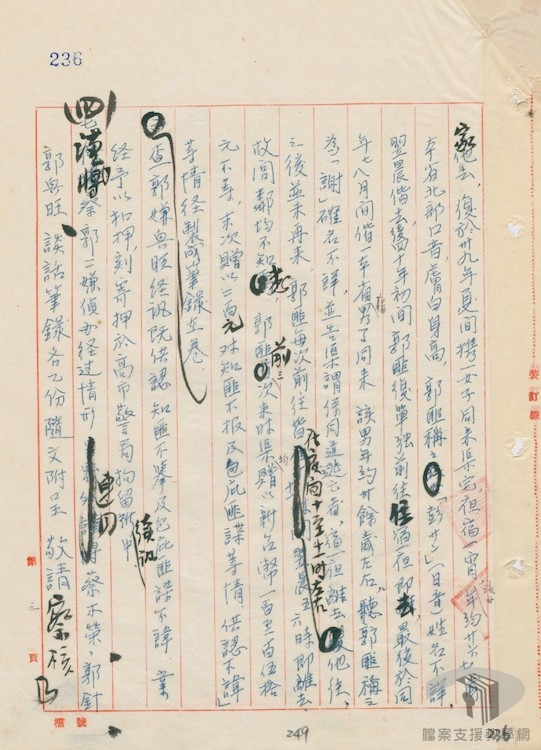 236
他去，復於卅九年夏間攜一女子同來渠宅宿，年約廿六七歲
本省北部口音，膚白身高，郭匪稱之「彭廿」（日音）姓名不詳，
翌晨偕去後，四十年初間郭匪復單獨前往住宿一夜即去，最後於同
年七八月間偕一本省男子同來，該男年約廿餘歲左右，聽郭匪稱之
為「謝」確名不詳，並告渠謂係同道逃亡者，宿一夜離去他往，
之後並未再來，郭匪每次前往皆在夜間十至十一時左右，翌晨五六時即離去
故閭鄰均不知，郭匪前三次來時渠贈以新台幣一百至一百伍拾
元不等，末次贈以二百元，對知匪不報及包庇匪諜等情，供認不諱」
等情經製成筆錄在卷。
查郭嫌與旺經訊既供認知匪不舉及包庇匪諜不諱，業
經予以扣押，刻寄押於高市警局拘留所中
(四)謹將蔡郭二嫌偵办經過情形連同蔡木榮、郭針
郭與旺談話筆錄各乙份隨文附呈 敬請 察核
裝訂線
第三頁
檔號
249
236
檔案支援教學網